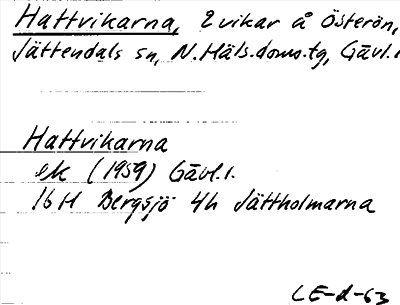 Hattvikarna, 2 vikar å Österön,
Jättendals sn, N.Häls.doms.tg, Gävl.l
Hattvikarna
ek (1959) Gävl.l.
16H Bergsjö 4h Jättholmarna
LE-d-63